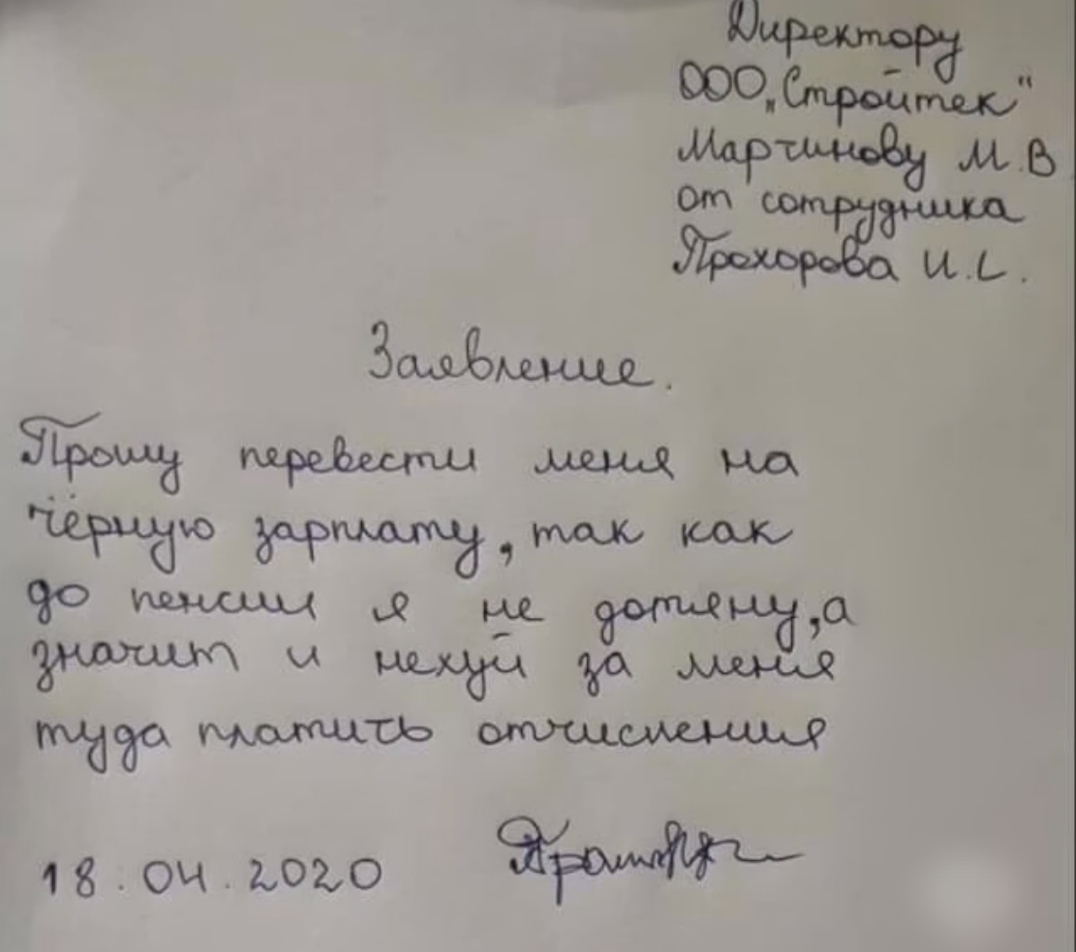 Директору
ООО „Стройтек"
Мартинову М.В
от сотрудника
Прохорова И.С.
Заявление.
Прошу перевести меня на
чёрную зарплату, так как
до пенсии я не дотяну, а
значит и нехуй за меня
туда платить отчисления
18.04.2020